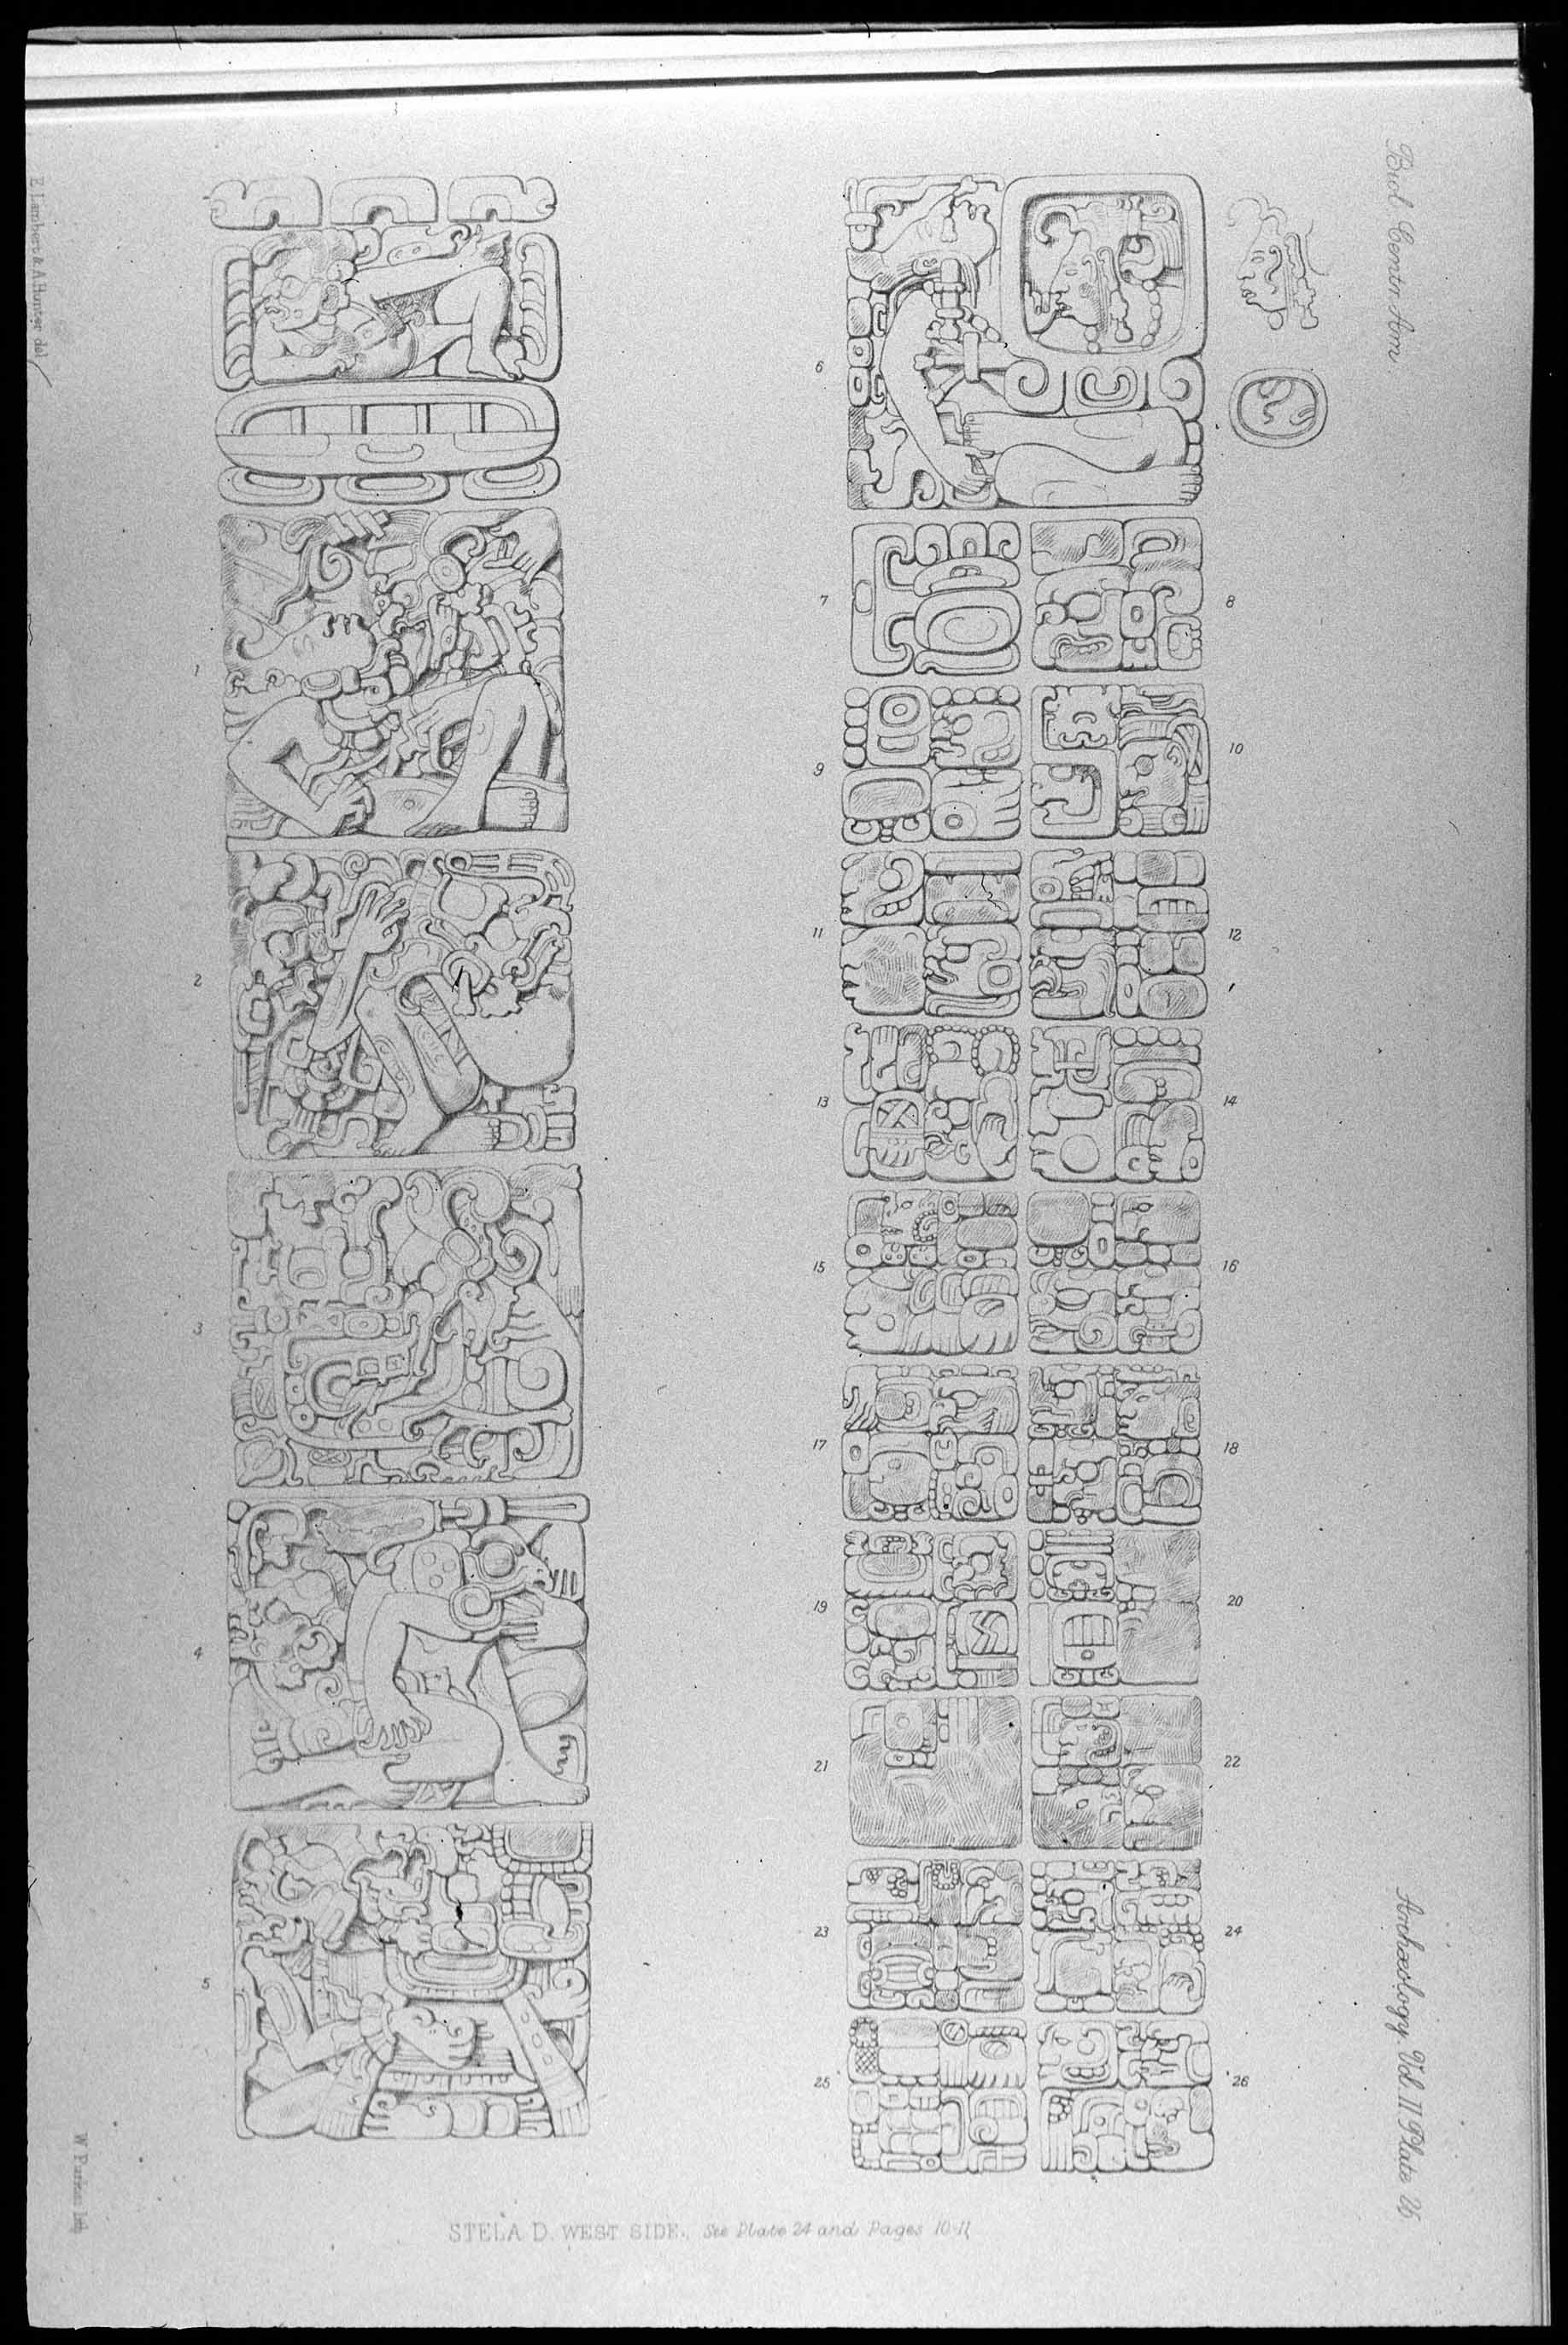 Biol. Centr. Am.
Archæology. Vol. II Plate 26
E. Lambert & A. Hunter del.
1
2
3
4
5
6
7
8
9
10
11
12
13
14
15
16
17
18
19
20
21
22
23
24
25
26
W. Purkiss lith.
STELA D. WEST SIDE. See Plate 24 and Pages 10-11